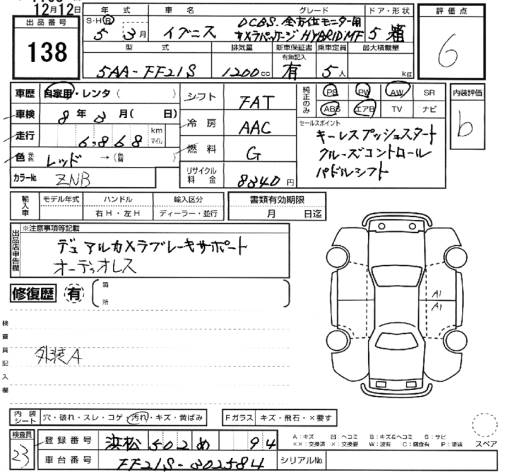 12月12日
出品番号
138
年式 車名 グレード ドア・形状 評価点
S・H・R 5年 3月 イグニス DCBS.全方位モニター用
カメラパッケージ HYBRIDMF 5
6
型式 排気量 新車保証書 乗車定員 最大積載量
有無記入
5AA-FF21S 1200cc 有 5人 kg
車歴 自家用・レンタ( )
車検 8年3月( 日)
走行 6,868 km マイル
色 レッド →( )
カラーNo. ZNB
シフト FAT
冷房 AAC
燃料 G
リサイクル料金 8340円
純正のみ PS PW AW SR
ABS エアB TV ナビ
内装評価
b
セールスポイント
キーレスプッシュスタート
クルーズコントロール
パドルシフト
輸入車 モデル年式 ハンドル 輸入区分 書類有効期限
右H・左H ディーラー・並行 月 日迄
出品店申告欄
※注意事項等記載
デュアルカメラブレーキサポート
オーディオレス
修復歴 有 箇所
検査員記入欄
外装A
A1
A1
内装シート 穴・破れ・スレ・コゲ 汚れ・キズ・黄ばみ Fガラス キズ・飛石・×要す
検査員 23
登録番号 浜松 502 め 94
車台番号 FF21S-302584 シリアルNo.
A:キズ U:ヘコミ B:キズ&ヘコミ S:サビ
××:交換済 X:要交換 W:波有 C:腐食有 P:塗装
スペア